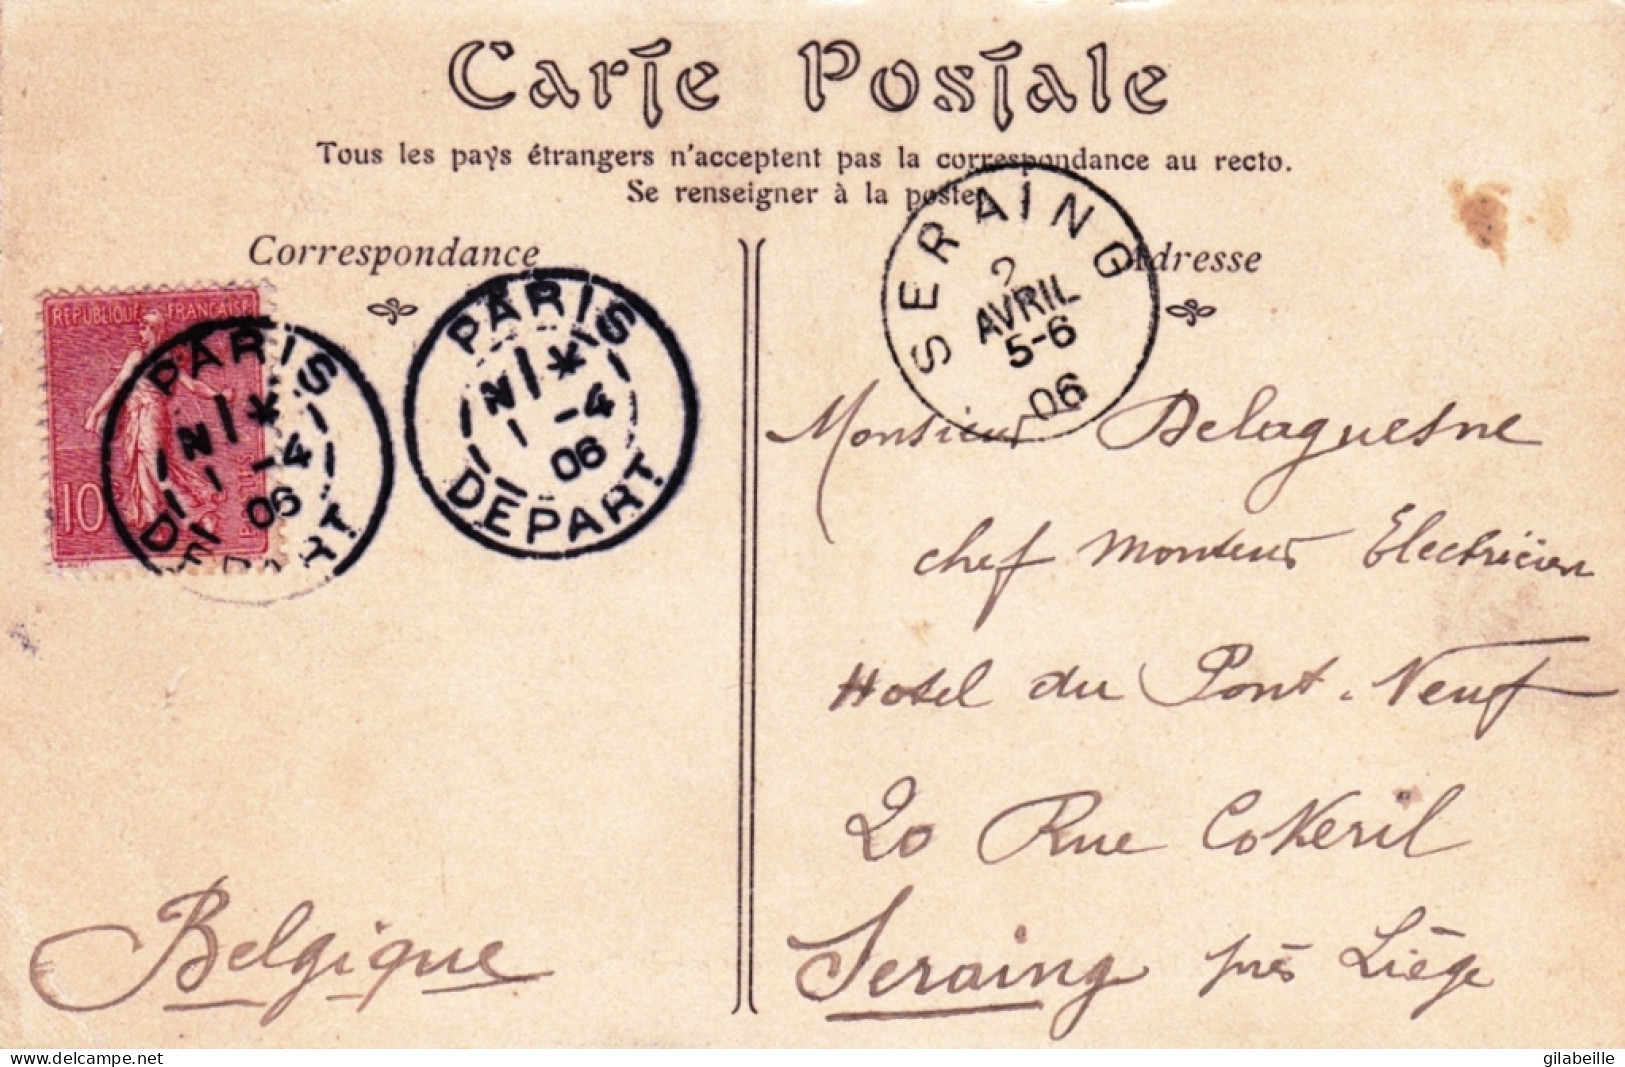 Carte Postale
Tous les pays étrangers n'acceptent pas la correspondance au recto.
Se renseigner à la poste.
Correspondance
Adresse
REPUBLIQUE FRANÇAISE
10
PARIS
1 -4
06
DEPART
PARIS
1 -4
06
DEPART
SERAING
2
AVRIL
5-6
06
Monsieur Delaguesne
chef monteur Electricien
Hotel du Pont-Neuf
20 Rue CoKeril
Seraing près Liège
Belgique
www.delcampe.net
gilabeille